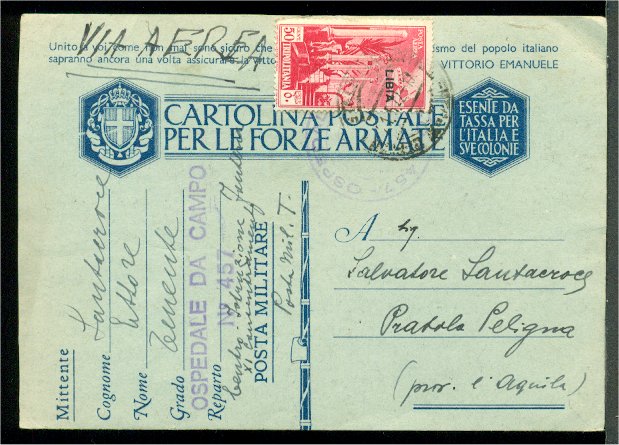 VIA AEREA
Unito a voi come non mai sono sicuro che ismo del popolo italiano
sapranno ancora una volta assicurare la vitto VITTORIO EMANUELE
POSTA AEREA
50 TRIPOLITANIA
LIBIA
CARTOLINA POSTALE
PER LE FORZE ARMATE
ESENTE DA
TASSA PER
L'ITALIA E
SVE COLONIE
457 OSPE
Mittente
Cognome Santacroce
Nome Ettore
Grado Tenente
OSPEDALE DA CAMPO
Nº 457
Reparto Centro Istruzione
POSTA MILITARE
Posta Mil. T.
A Sig.
Salvatore Santacroce
Pratola Peligna
(prov. l'Aquila)